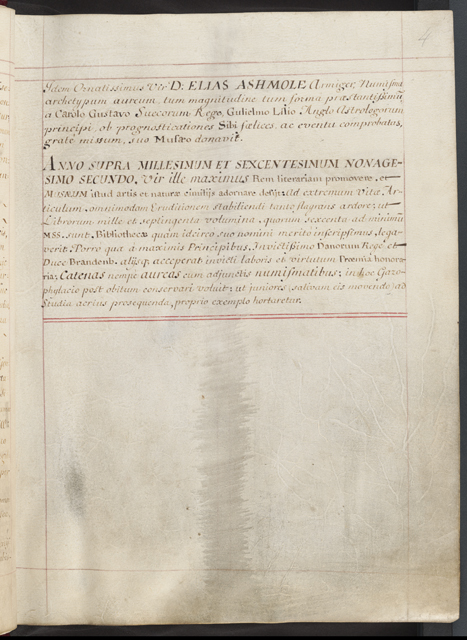 4
Idem Ornatissimus Vir D: ELIAS ASHMOLE Armiger, Numisma
archetypum aureum, tum magnitudine tum forma præstantissimũ
a Carolo Gustavo Suecorum Rege, Gulielmo Lilio Anglo Astrologorum
principi, ob prognosticationes Sibi fælices, ac eventu comprobatas,
grate missum, suo Musæo donavit.
ANNO SUPRA MILLESIMUM ET SEXCENTESIMUM NONAGE-
SIMO SECUNDO, Vir ille maximus Rem literariam promovere, et
MUSÆUM istud artis et naturæ cimiliis adornare
ad extremum Vitæ Ar-
ticulum omnimodam Eruditionem stabiliendi tanto flagrans ardore, ut
Librorum mille et septingenta volumina, quorum sescenta ad minimũ
MSS. sunt, Bibliothecæ quam idcirco suo nomini merito inscripsimus, lega-
verit. Porro quæ à maximis Principibus, Invictissimo Danorum Rege, et
Duce Brandenb. aliisq. acceperat invicti laboris et virtutum Præmia honora-
ria; Catenas nempe aureas cum adjunctis numismatibus; in hoc Gazo-
phylacio post obitum conservari voluit; ut juniores, salivam eis movendo, ad
Studia acrius prosequenda, proprio exemplo hortaretur.